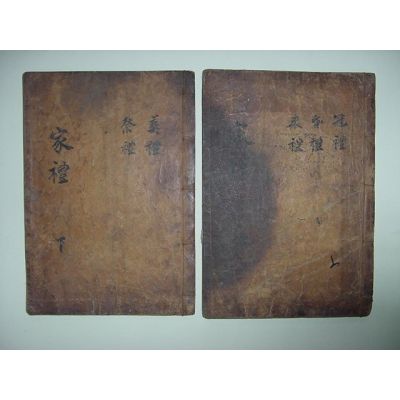 冠禮
昏禮
喪禮
上
葬禮
祭禮
家禮 下